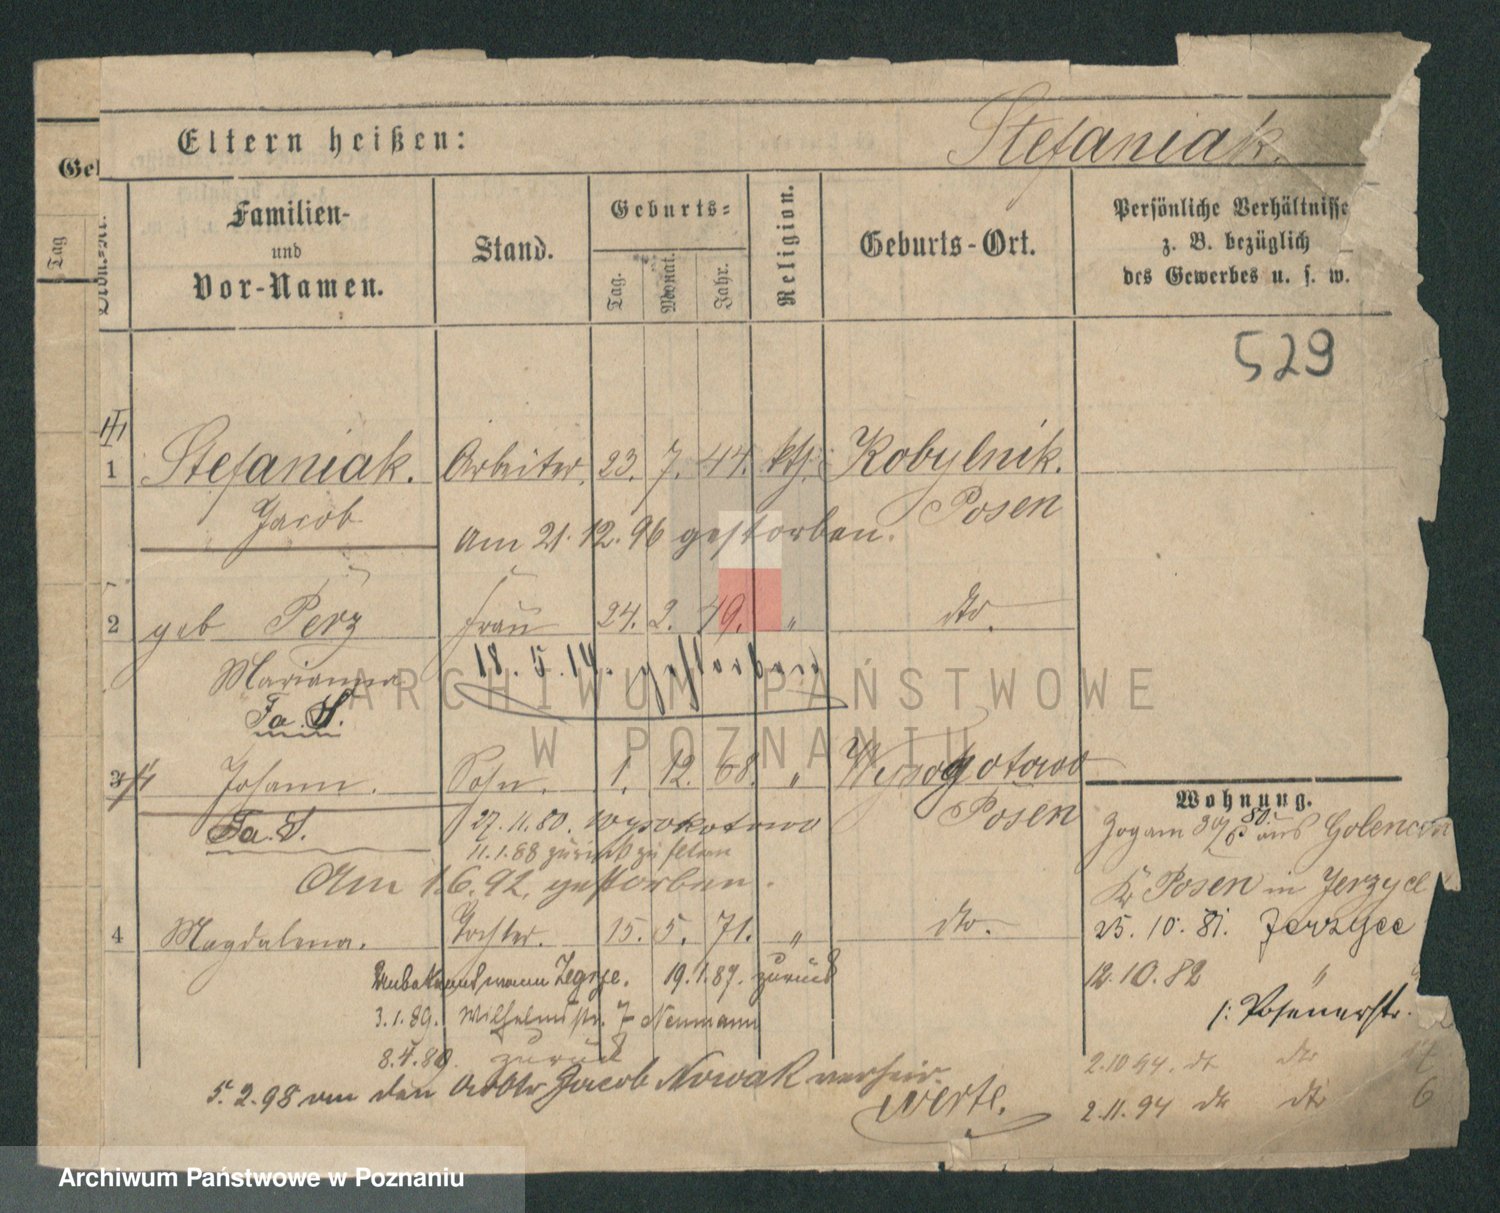 Eltern heißen:
Stefaniak.
Gel
Tag
Familien-
und
Vor-Namen.
Stand.
Geburts-
Tag.
Monat.
Jahr.
Religion.
Geburts-Ort.
Persönliche Verhältnisse
z. B. bezüglich
des Gewerbes u. s. w.
529
1 Stefaniak. Arbeiter. 23. 7. 44. kth. Kobylnik.
Jacob Posen
Am 21.12.96 gestorben.
2 geb Perz Frau 24. 2. 49. " dto.
Marianna 18. 5. 14. gestorben
Fa. S.
3 Johann. Sohn. 1. 12. 68. " Wysogotowo
Posen
Fa. S. 27.11.80. Wysokotowo
11.1.88 zurück zu Eltern
Am 1.6.92. gestorben.
4 Magdalena. Tochter. 15. 5. 71. " dto.
19.1.87. zurück
3.1.89. Wilhelmstr. 7 Neumann
8.4.89. zurück
5.2.98 an den Arbtr Jacob Nowak verheir.
Wohnung.
Zog am 30/6 80 aus Golencin
Kr Posen in Jerzyce
25. 10. 81. Jerzyce
12.10.82 "
Posenerstr.
2.10.94. dto dto 17
2.11.94 dto dto 6
ARCHIWUM PAŃSTWOWE
W POZNANIU
Archiwum Państwowe w Poznaniu